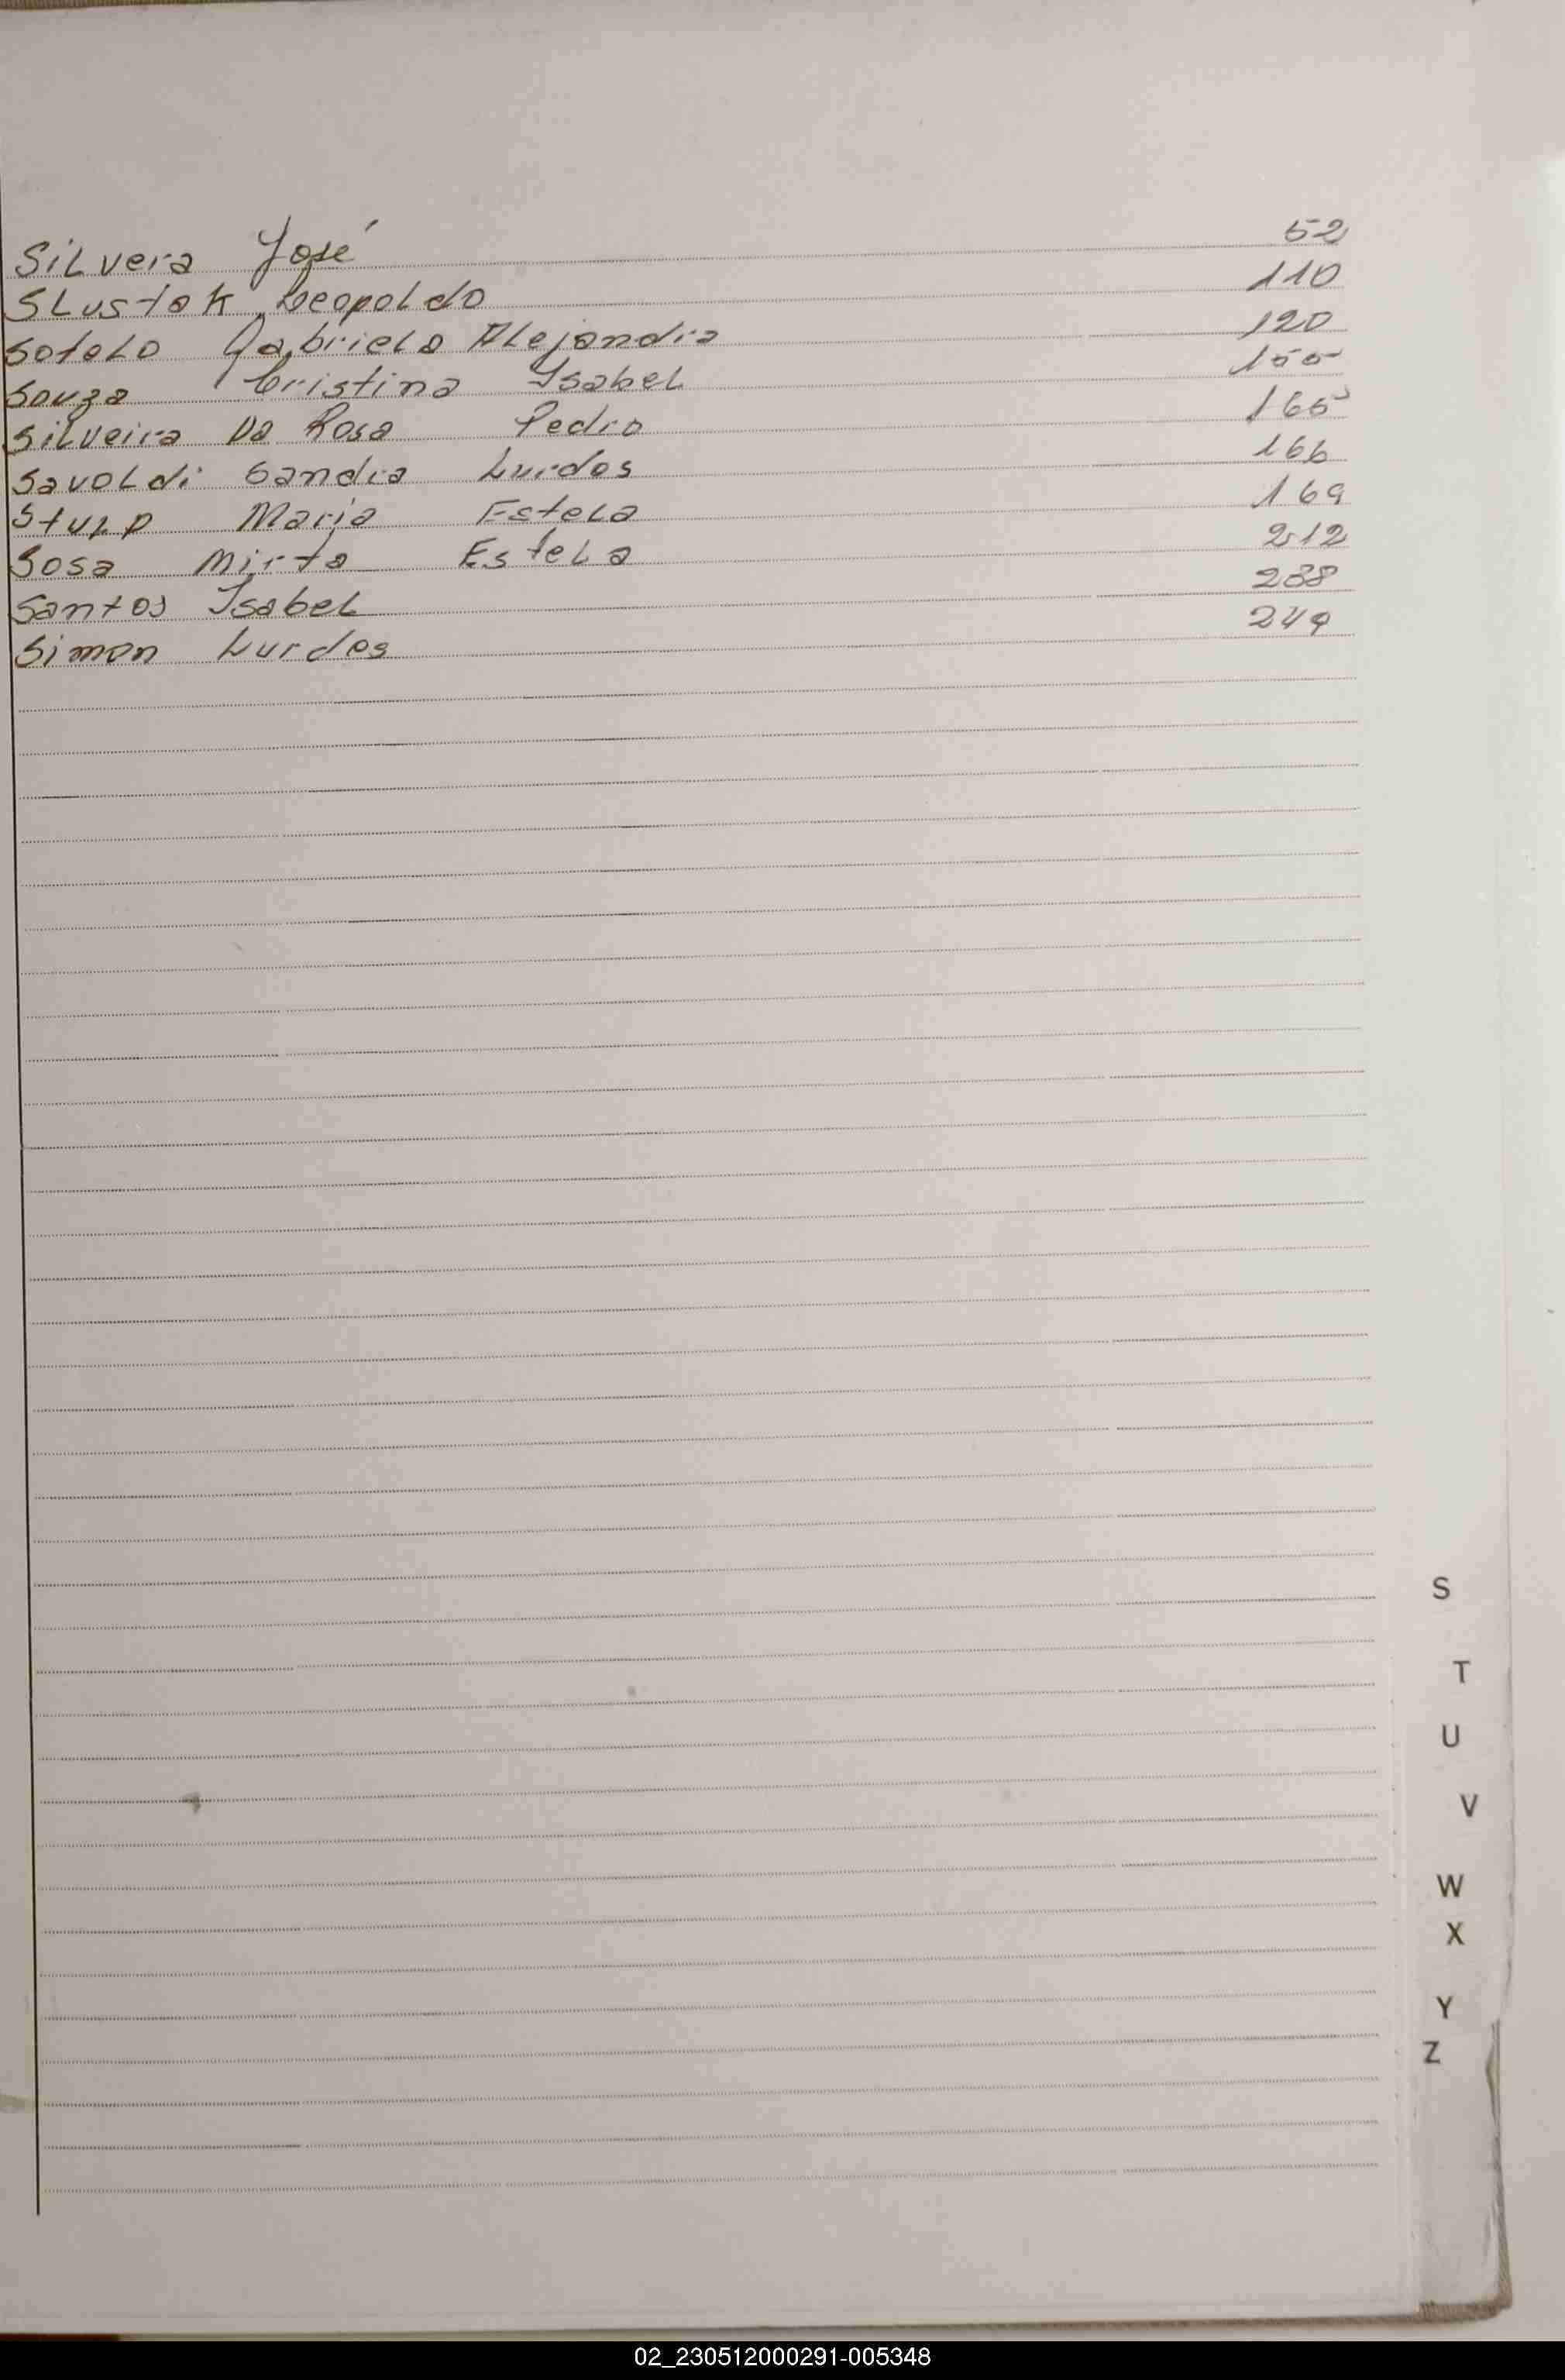 Silvera José 52
Slustok Leopoldo 110
Sotelo Gabriela Alejandra 120
Souza Cristina Isabel 155
Silveira Da Rosa Pedro 165
Savoldi Sandra Lurdes 166
Stulp Maria Estela 169
Sosa Mirta Estela 212
Santos Isabel 238
Simon Lurdes 249
S
T
U
V
W
X
Y
Z
02_230512000291-005348